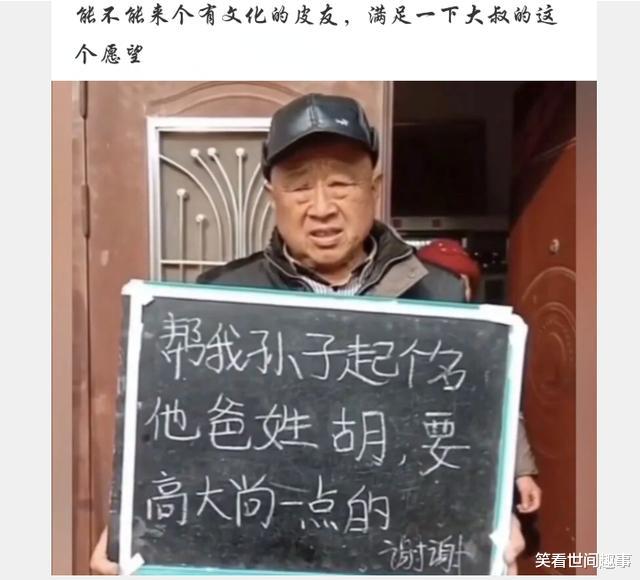 能不能来个有文化的皮友，满足一下大叔的这
个愿望
帮我孙子起个名
他爸姓胡，要
高大尚一点的
谢谢
笑看世间趣事